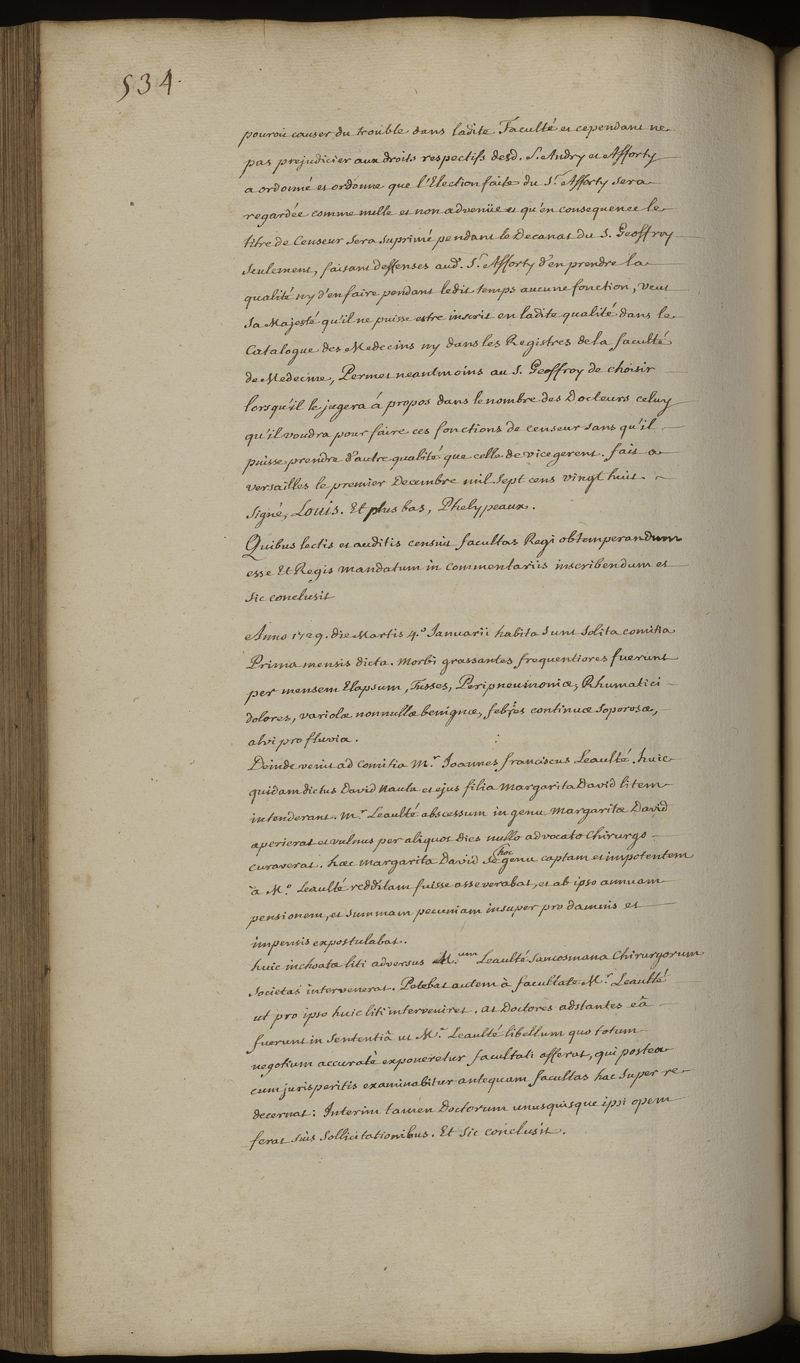 534.
pouroit causer du trouble dans ladite Faculté et cependant ne
pas prejudicier aux droits respectifs desd. S. Andry et Afforty
a ordonné et ordonne que l'Election faite du S.r Afforty sera
regardée comme nulle et non advenüe et qu'en consequence le
titre de Censeur sera suprimé pendant le Decanat du S. Geoffroy
seulement, faisant deffenses aud. S.r Afforty d'en prendre la
qualité ny d'en faire pendant ledit temps aucune fonction, veut
sa Majesté qu'il ne puisse estre inscrit en ladite qualité dans le
Catalogue des Medecins ny dans les Registres de la faculté
de Medecine, Permet neantmoins au S. Geoffroy de choisir
lorsqu'il le jugera à propos dans le nombre des Docteurs celuy
qu'il voudra pour faire ces fonctions de censeur sans qu'il
puisse prendre d'autre qualité que celle de vicegerent. fait a
versailles le premier Decembre mil sept cens vingt huit.
Signé, Louis. Et plus bas, Phelypeaux.
Quibus lectis et auditis censuit facultas Regi obtemperandum
esse Et Regis mandatum in commentariis inscribendum et
sic conclusit
Anno 1729. die Martis 4.º Januarii habita sunt solita comitia
Prima mensis dicta. Morbi grassantes frequentiores fuerunt
per mensem Elapsum, Tusses, Peripneumoniæ, Rhumatici
dolores, variolæ nonnullæ benignæ, febres continuæ soporosæ,
alvi profluvia.
Deinde venit ad Comitia M.r Joannes franciscus Leaulté. huic
quidam dictus David Nauta et ejus filia Margarita David litem
intenderant. M.r Leaulté abscessum in genu Margaritæ David
aperierat et vulnus per aliquot dies nullo advocato Chirurgo
curaverat. hæc Margarita David se hoc genu captam et impotentem
à M.º Leaulté redditam fuisse asseverabat, et ab ipso annuam
pensionem, et summam pecuniam insuper pro damnis et
impensis expostulabat.
huic inchoatæ liti adversus M.um Leaulté Sancosmana Chirurgorum
Societas intervenerat. Petebat autem à facultate M.r Leaulté
ut pro ipso huic liti interveniret. at Doctores adstantes eâ
fuerunt in Sententiâ ut M.r Leaulté libellum quo totum
negotium accuratè exponeretur facultati offerat, qui postea
cum jurisperitis examinabitur antequam facultas hac super re
decernat: Interim tamen Doctorum unusquisque ipsi opem
ferat suis sollicitationibus. Et sic conclusit.